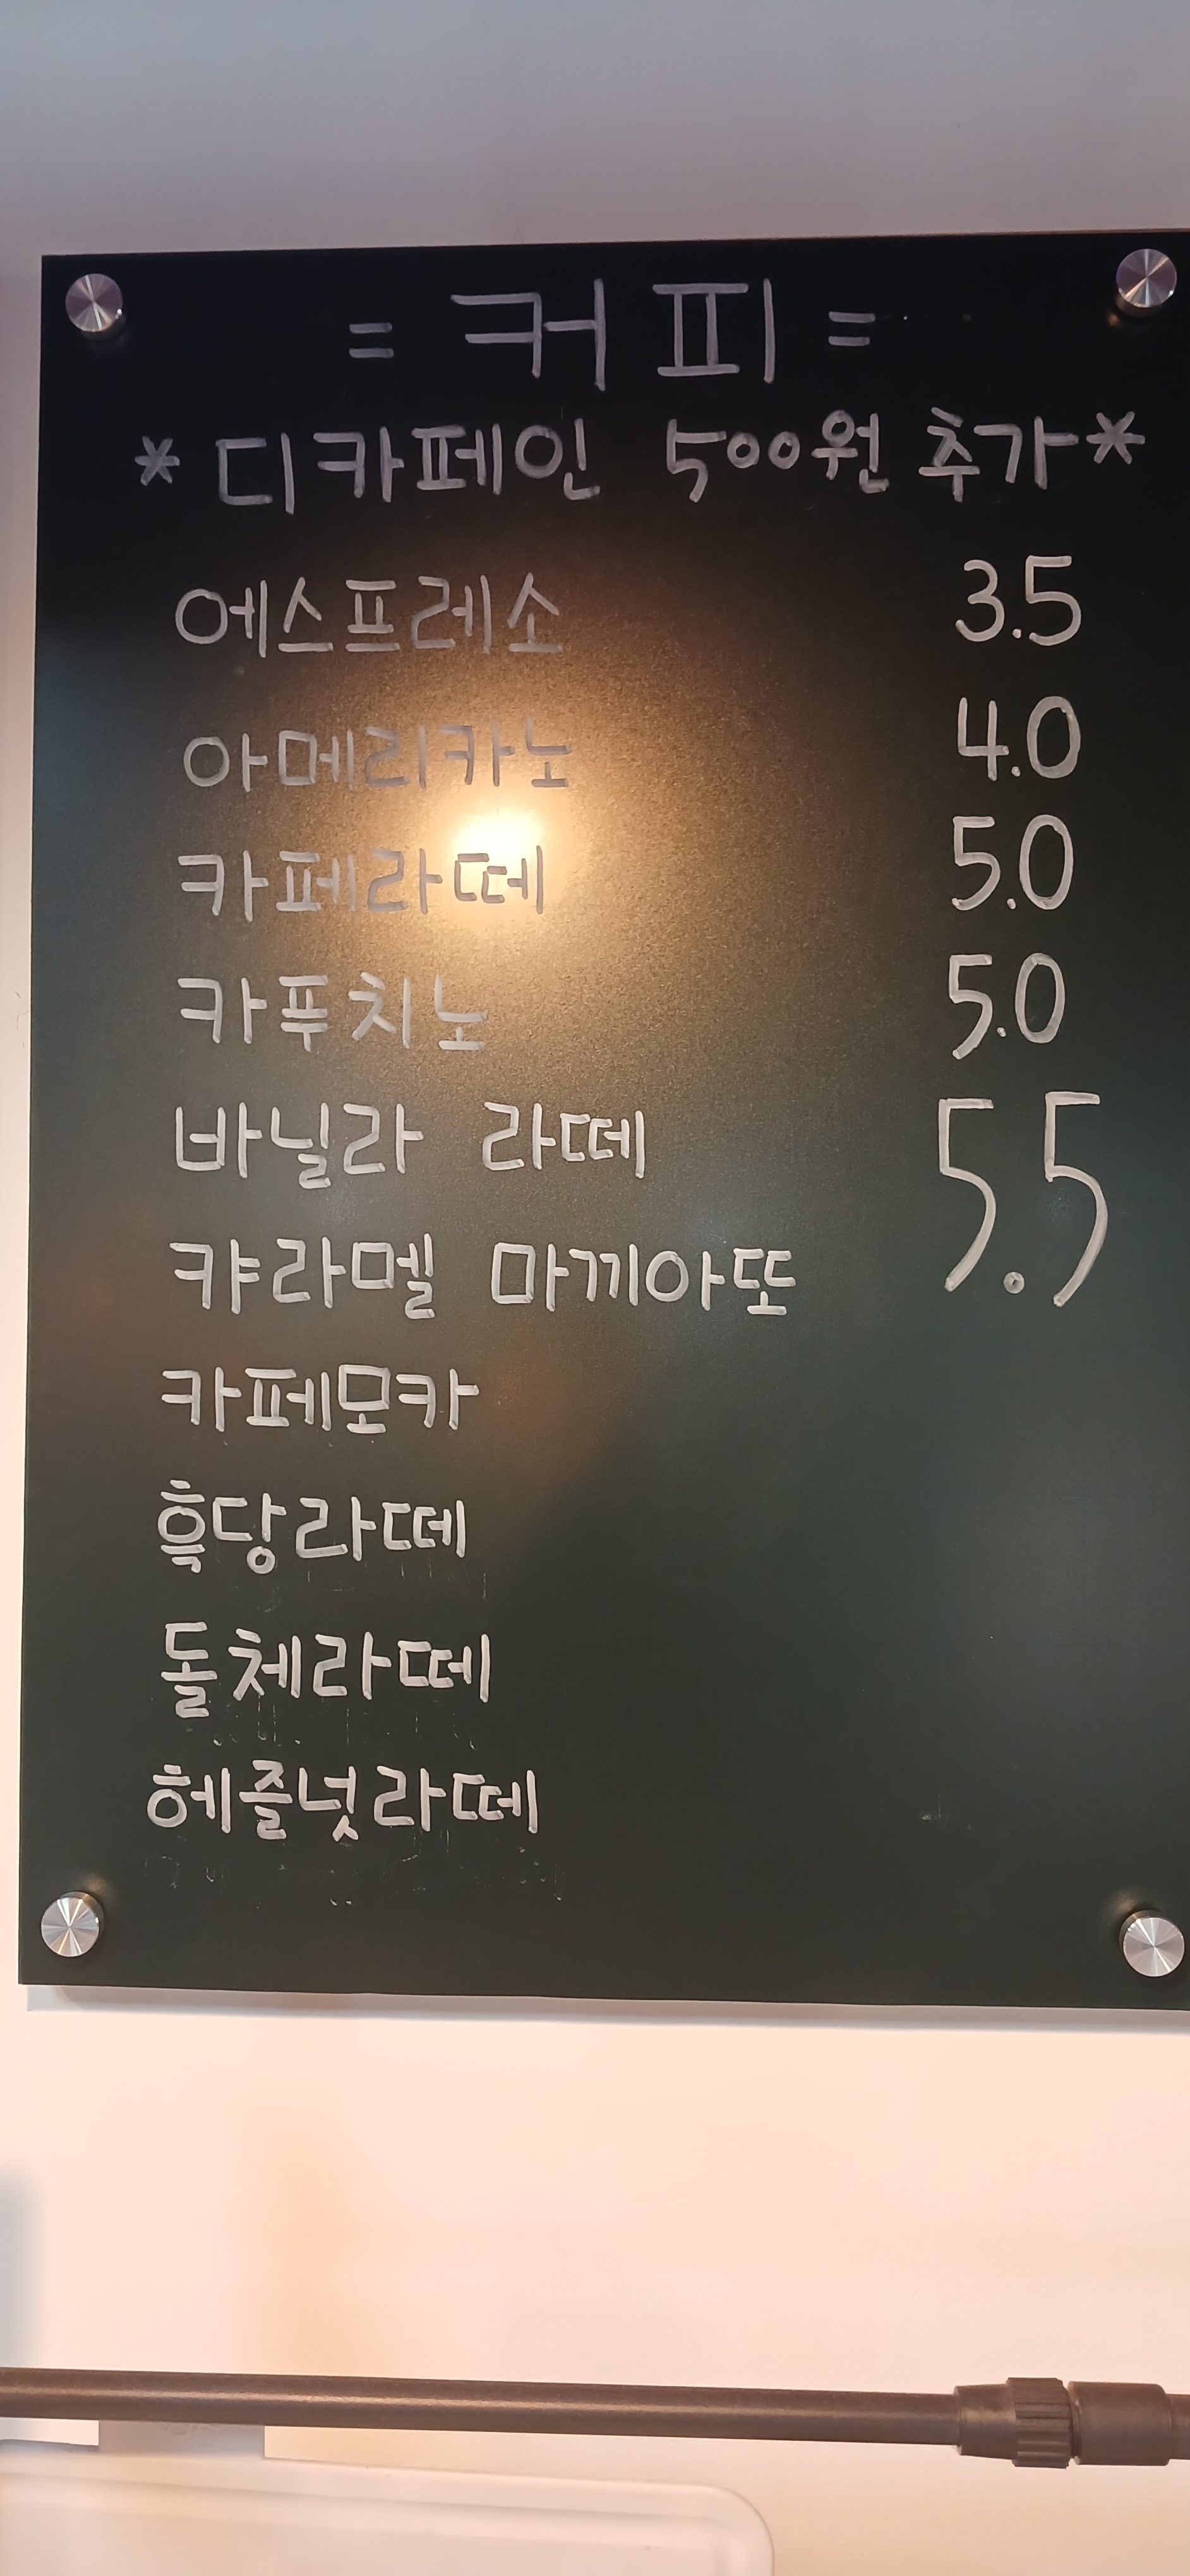 = 커피 =
* 디카페인 500원 추가 *
에스프레소 3.5
아메리카노 4.0
카페라떼 5.0
카푸치노 5.0
바닐라 라떼 5.5
캬라멜 마끼아또
카페모카
흑당라떼
돌체라떼
헤즐넛라떼